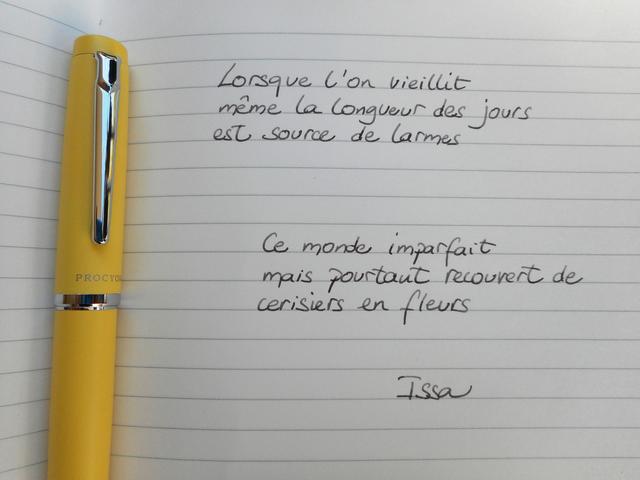 Lorsque l'on vieillit
même la longueur des jours
est source de larmes
Ce monde imparfait
mais pourtant recouvert de
cerisiers en fleurs
Issa